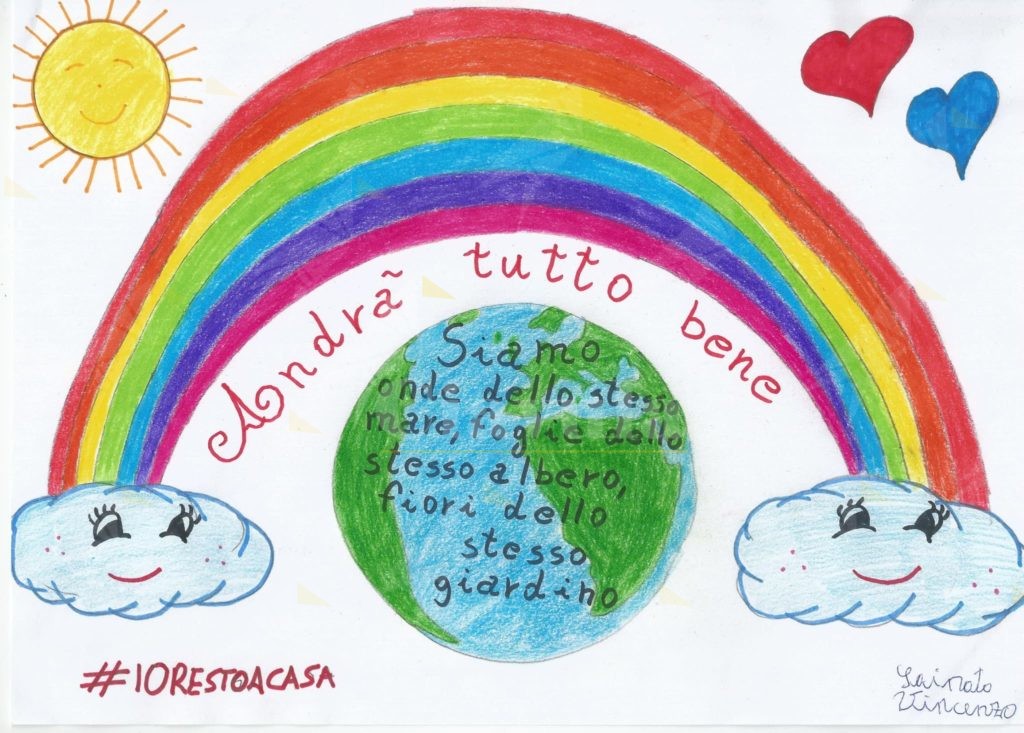 Andrã tutto bene
Siamo
onde dello stesso
mare, foglie dello
stesso albero,
fiori dello
stesso
giardino
#IORESTOACASA
Lainato
Vincenzo